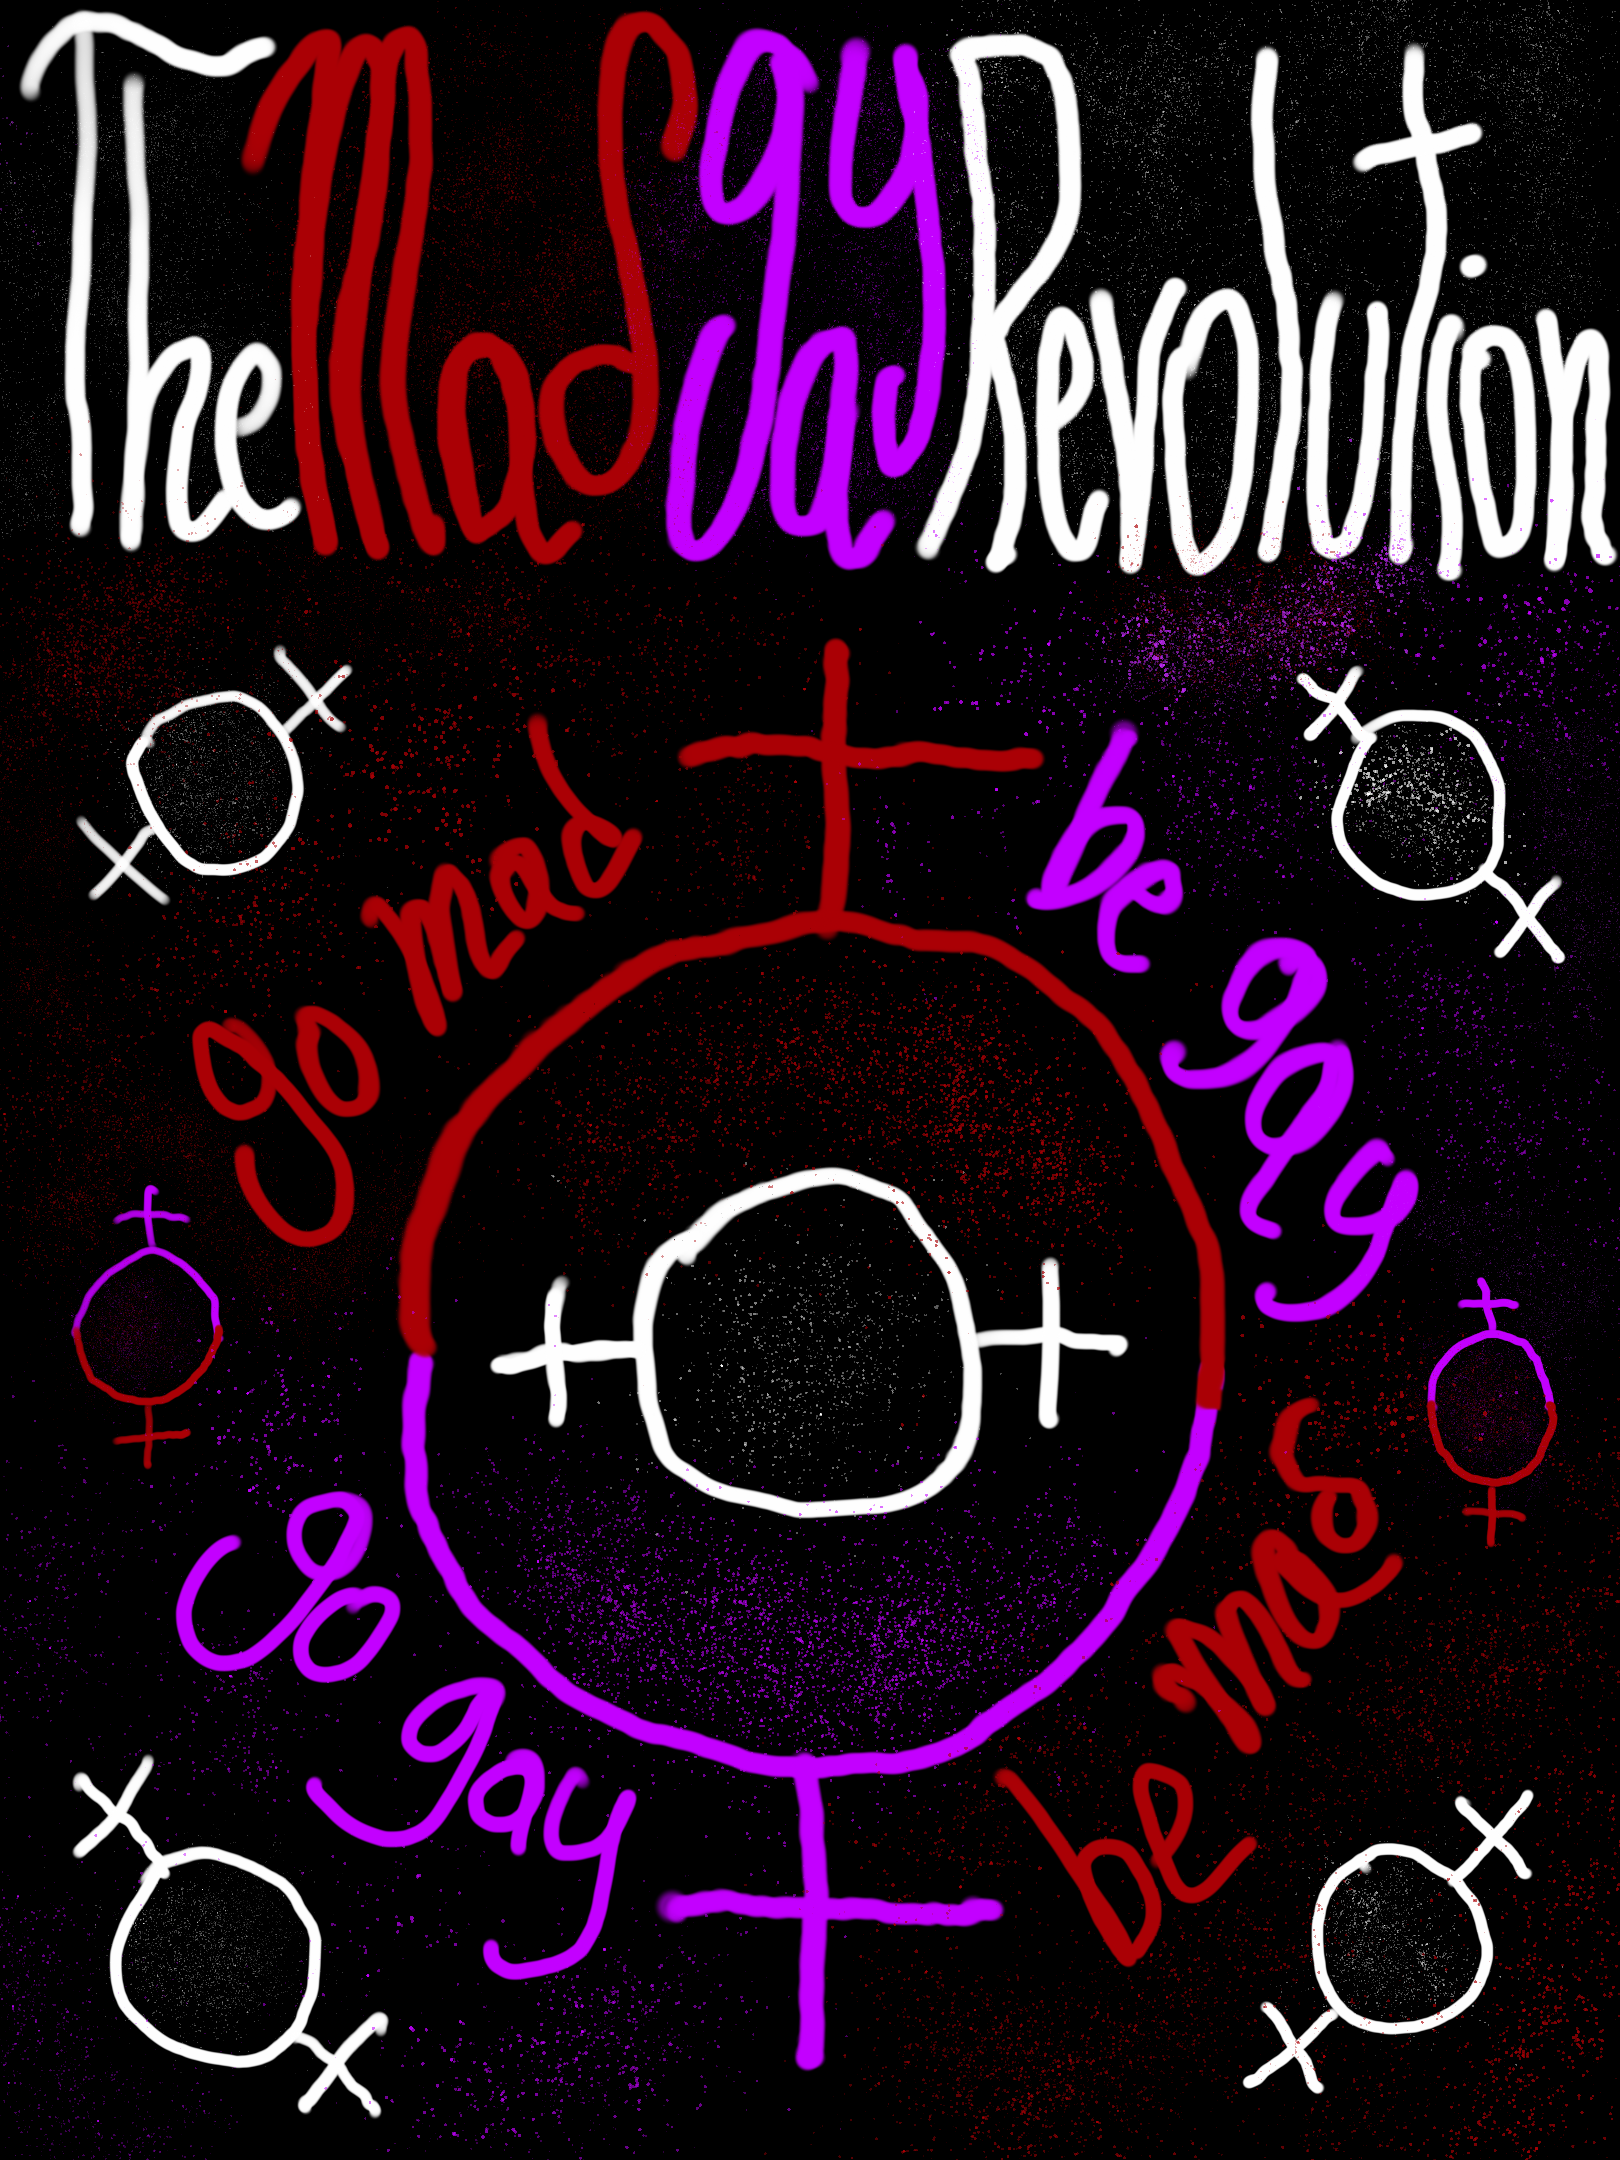 The Mad gay Revolution
go mad
be gay
go gay
be mad